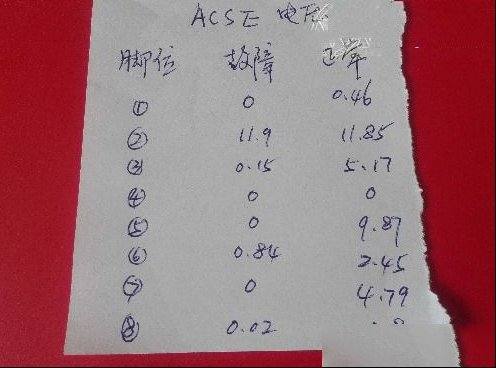 ACSE 电压
脚位 故障 正常
① 0 0.46
② 11.9 11.85
③ 0.15 5.17
④ 0 0
⑤ 0 9.87
⑥ 0.84 2.45
⑦ 0 4.79
⑧ 0.02